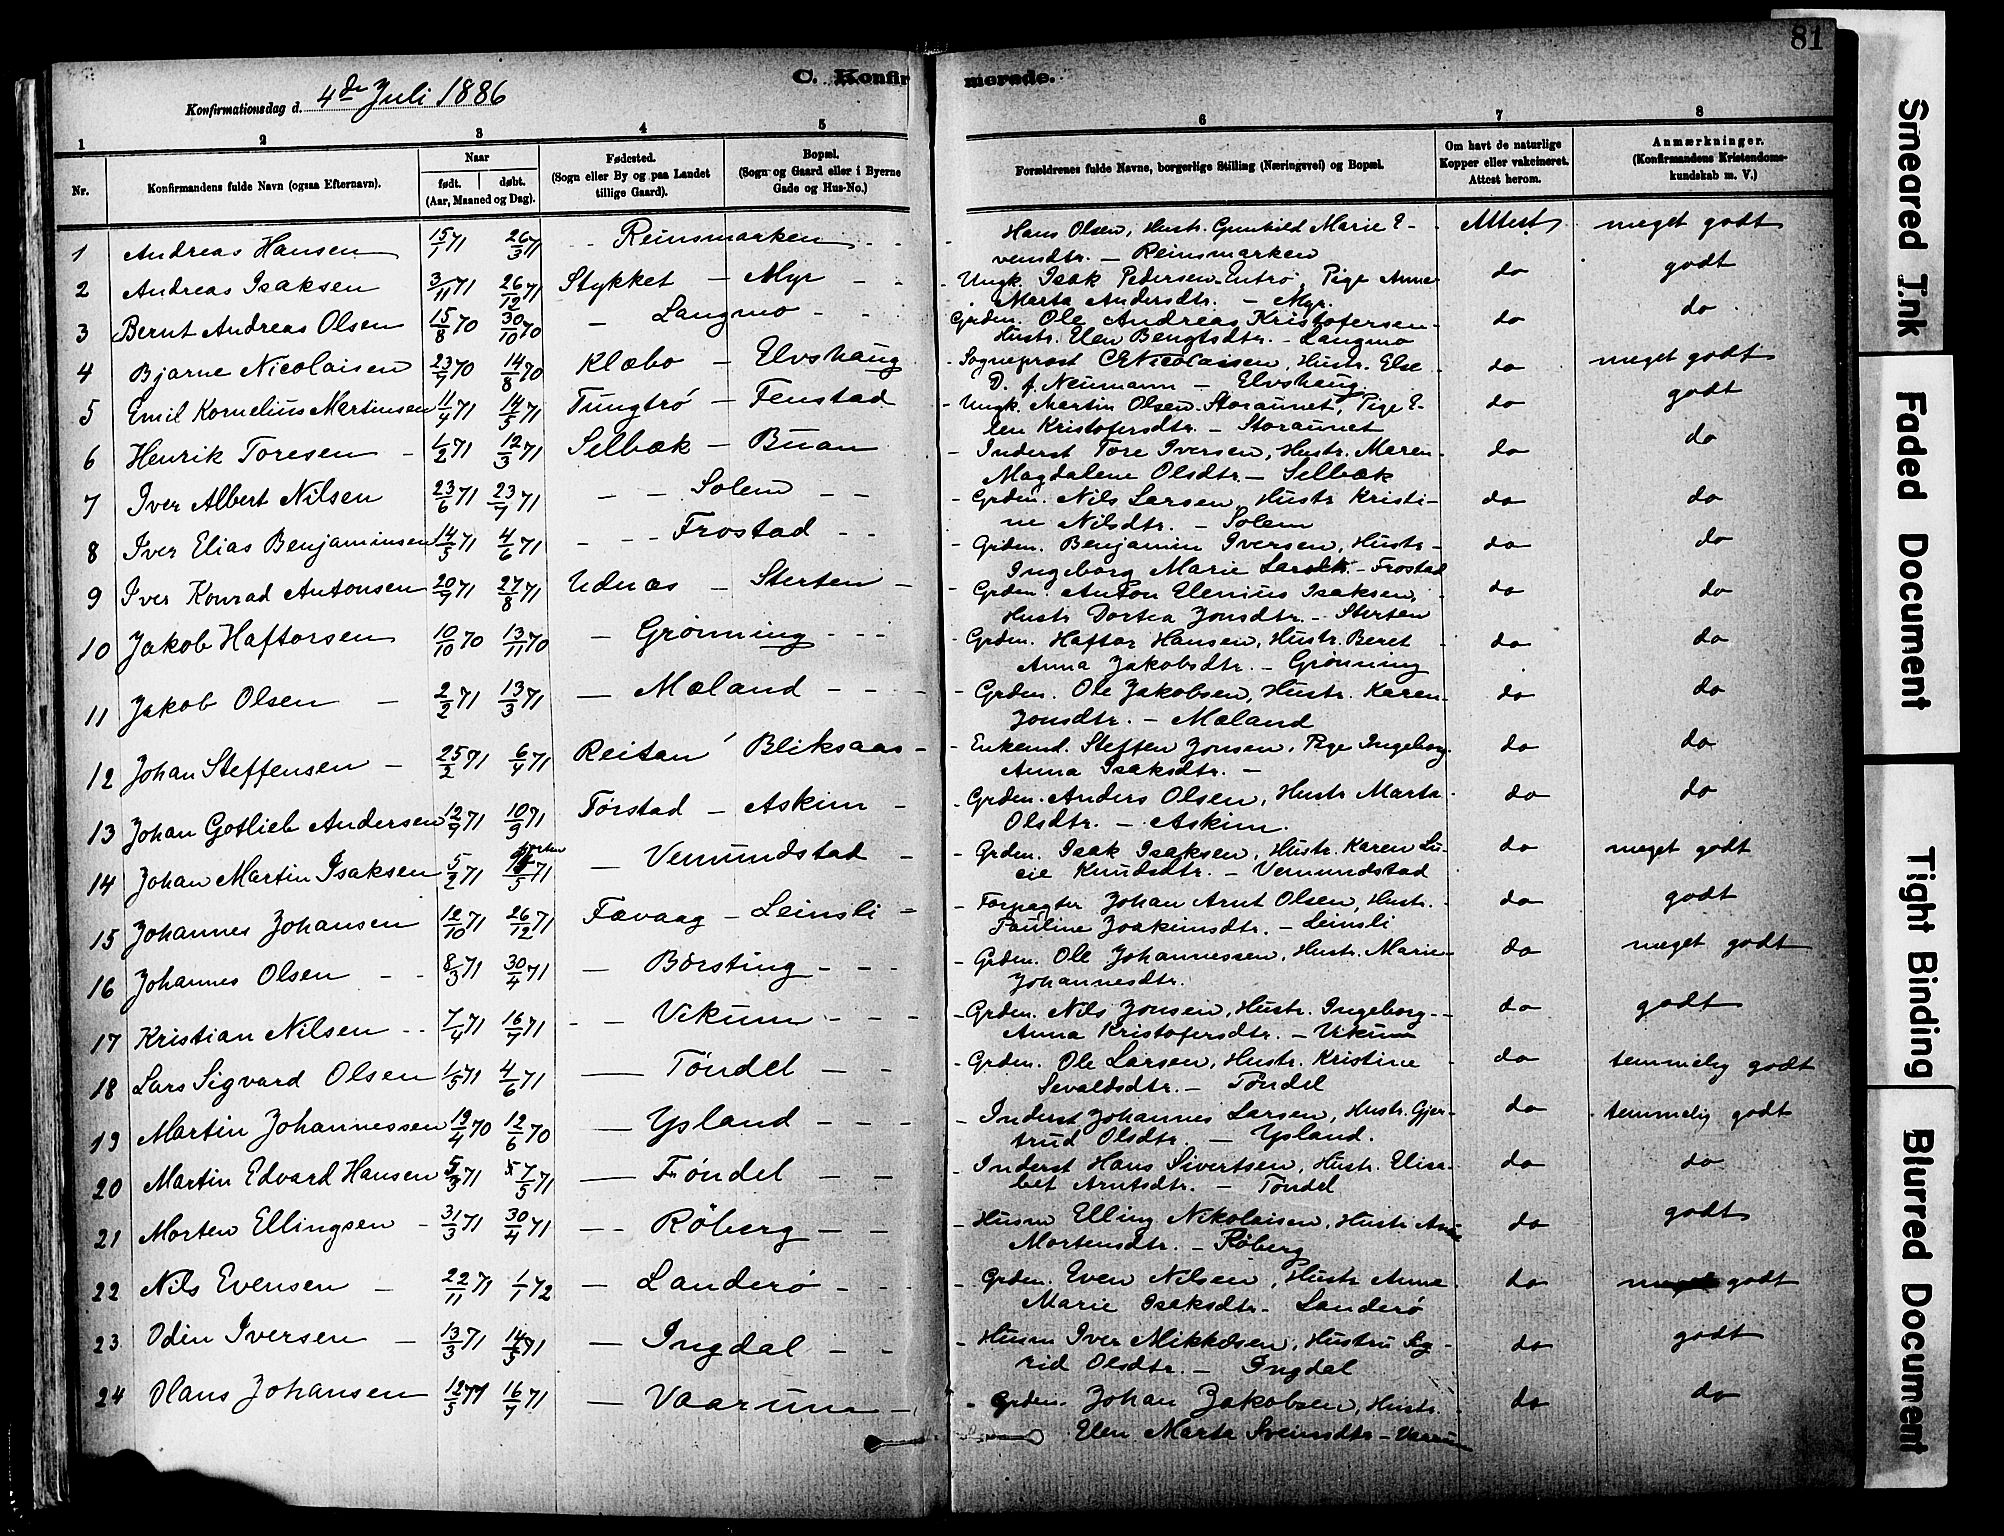 81
C. Konfirmerede.
Konfirmationsdag d. 4de Juli 1886
1 2 3 4 5 6 7 8
Nr. Konfirmandens fulde Navn (ogsaa Efternavn). Naar født. døbt. (Aar, Maaned og Dag). Fødested. (Sogn eller By og paa Landet tillige Gaard). Bopæl. (Sogn og Gaard eller i Byerne Gade og Hus-No.) Forældrenes fulde Navne, borgerlige Stilling (Næringsvei) og Bopæl. Om havt de naturlige Kopper eller vakcineret. Attest herom. Anmærkninger. (Konfirmandens Kristendomskundskab m. V.)
1 Andreas Hansen 15/1 71 26/3 71 - - Reinsmarken - - Hans Olsen, Hustr. Gunhild Marie E- Attest meget godt
vensdtr. - Reinsmarken
2 Andreas Isaksen 3/11 71 26/12 71 Stykket - Myr - - Ungk. Isak Pedersen Entrø, Pige Anne do godt
Marta Andersdtr. - Myr.
3 Bernt Andreas Olsen 15/8 70 30/10 70 - Langmo - - Grdm. Ole Andreas Kristofersen do do
Hustr. Elen Bengtsdtr. - Langmo
4 Bjarne Nicolaisen 23/7 70 14/8 70 Klæbo - Elvshaug Sogneprost C E Nicolaisen, Hustr. Else do meget godt
D. f. Neumann - Elvshaug
5 Emil Kornelius Martinsen 11/4 71 14/5 71 Tungtrø - Fenstad - Ungk. Martin Olsen Storaunet, Pige E- do godt
len Kristofersdtr. - Storaunet
6 Henrik Toresen - 1/2 71 12/3 71 Selbæk - Buan - Inderst Tore Iversen, Hustr. Maren do do
Magdalene Olsdtr. - Selbæk
7 Iver Albert Nilsen 23/6 71 23/7 71 - - Solem - - - Grdm. Nils Larsen, Hustr. Kristi- do do
ne Nilsdtr. - Solem
8 Iver Elias Benjaminsen 14/5 71 4/6 71 - - Frostad - - - Grdm. Benjamin Iversen, Hustr. do do
Ingeborg Marie Larsdtr. - Frostad
9 Iver Konrad Antonsen 20/7 71 27/8 71 Udnæs - Sterten - - Grdm. Anton Elenius Isaksen, do do
Hustr. Dortea Jonsdtr. - Sterten
10 Jakob Haftorsen 10/10 70 13/11 70 - Grønning - - - - Grdm. Haftor Hansen, Hustr. Beret do do
Anna Jakobsdtr. - Grønning
11 Jakob Olsen - 2/2 71 13/3 71 - Mæland - - - - Grdm. Ole Jakobsen, Hustr. Karen do do
Jonsdtr. - Mæland
12 Johan Steffensen - 25/2 71 6/4 71 Reitan Bliksaas - - Enkemd. Steffen Jonsen, Pige Ingeborg do do
Anna Isaksdtr. -
13 Johan Gotlieb Andersen 12/7 71 10/9 71 Tørstad - Askim - - Grdm. Anders Olsen, Hustr. Marta do do
Olsdtr. - Askim.
14 Johan Martin Isaksen 5/2 71 /5 71 - Vemundstad - - Grdm. Isak Isaksen, Hustr. Karen Lu- do meget godt
cie Knudsdtr. - Vemundstad
15 Johannes Johansen 12/10 71 26/12 71 Fævaag - Leinsli - - Forpagter Johan Arnt Olsen, Hustr. do godt
Pauline Joakimsdtr. - Leinsli
16 Johannes Olsen - - 8/3 71 30/4 71 - Børsting - - - - Grdm. Ole Johannessen, Hustr. Marie do meget godt
Johannesdtr.
17 Kristian Nilsen - - 7/4 71 16/7 71 - - Vikum - - - - Grdm. Nils Jonsen, Hustr. Ingeborg do godt
Anna Kristofersdtr. - Vikum
18 Lars Sigvard Olsen 1/5 71 4/6 71 - Tøndel - - - Grdm. Ole Larsen, Hustr. Kristine do temmelig godt
Sevaldsdtr. - Tøndel
19 Martin Johannessen 19/4 70 12/6 70 - Ysland - - - - Inderst Johannes Larsen, Hustr. Gjer- do temmelig godt
trud Olsdtr. - Ysland.
20 Martin Edvard Hansen 5/3 71 7/5 71 - Tøndel - - - Inderst Hans Sivertsen, Hustr. Elisa- do do
bet Arntsdtr. - Tøndel
21 Morten Ellingsen - 31/3 71 30/4 71 - - Røberg - - - Husm. Elling Nikolaisen, Hustr. Anne do godt
Mortensdtr. - Røberg
22 Nils Evensen - 22/11 71 1/1 72 - Landerø - - - Grdm. Even Nilsen, Hustr. Anne do godt
Marie Isaksdtr. - Landerø
23 Odin Iversen - 13/3 71 14/5 71 - Ingdal - - - Husm. Iver Mikkelsen, Hustru Sig- do godt
rid Olsdtr. - Ingdal
24 Olaus Johansen 12/5 71 16/7 71 - Vaarum - - Grdm. Johan Jakobsen, Hustr. do do
Elen Marta Sveinsdtr. - Vaarum
Smeared Ink
Faded Document
Tight Binding
Blurred Document